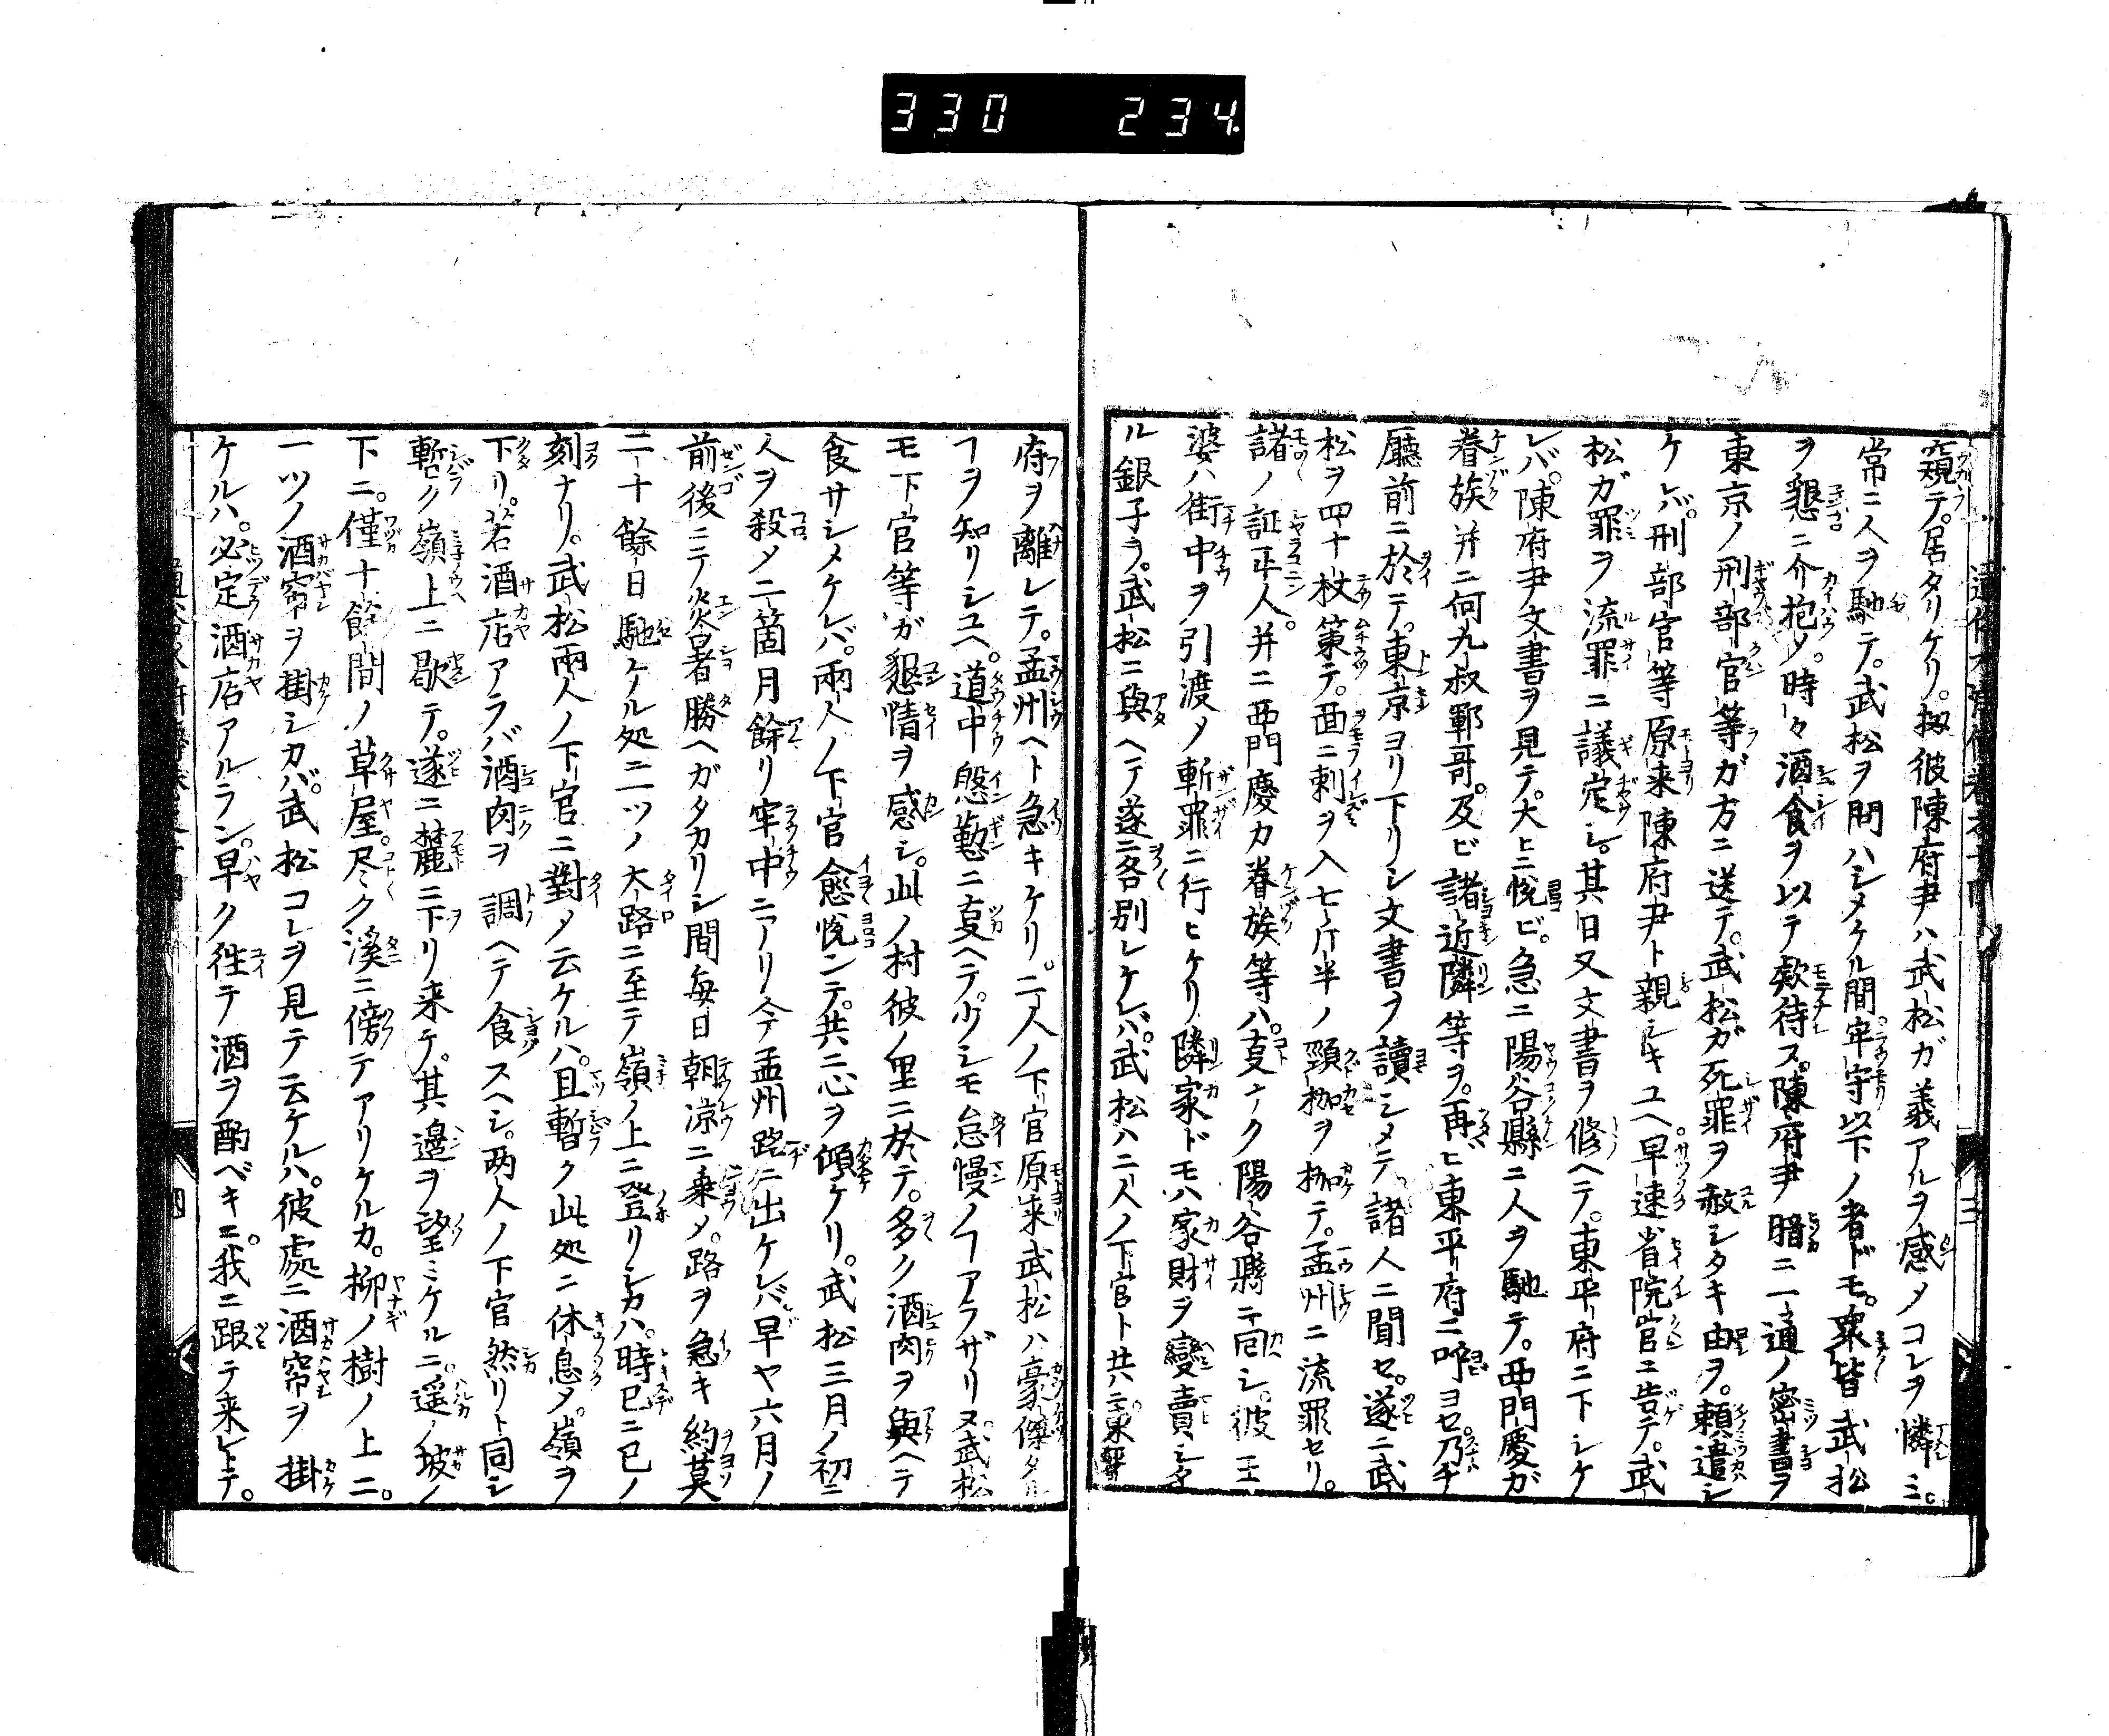 330 234
窺テ居タリケリ。扨彼陳府尹ハ武松ガ義アルヲ感メコレヲ憐ミ。
常ニ人ヲ馳テ。武松ヲ問ハシメケル間。牢守以下ノ者ドモ。衆皆武松
ヲ懇ニ介抱メ。時々酒食ヲ以テ欵待ス。陳府尹暗ニ一通ノ密書ヲ
東京ノ刑部官等ガ方ニ送テ。武松ガ死罪ヲ赦シタキ由ヲ。頼遣シ
ケレバ。刑部官等原来陳府尹ト親シキユヘ。早速省院官ニ告テ。武
松ガ罪ヲ流罪ニ議定シ。其日又文書ヲ修ヘテ。東平府ニ下シケ
レバ。陳府尹文書ヲ見テ。大ヒニ悦ビ。急ニ陽谷縣ニ人ヲ馳テ。西門慶ガ
眷族并ニ何九叔鄆哥。及ビ諸近隣等ヲ。再ヒ東平府ニ呼ヨセ。乃チ
廳前ニ於テ。東京ヨリ下リシ文書ヲ讀シメテ。諸人ニ聞セ。遂ニ武
松ヲ四十杖策テ。面ニ刺ヲ入七斤半ノ頸枷ヲ枷テ。孟州ニ流罪セリ。
諸ノ証人。并ニ西門慶カ眷族等ハ。叓ナク陽谷縣ニ囘シ。彼王
婆ハ街中ヲ引渡メ斬罪ニ行ヒケリ。隣家ドモハ家財ヲ變賣シタ
ル銀子ヲ。武松ニ與ヘテ遂ニ各別レケレバ。武松ハ二人ノ下官ト共ニ東平
府ヲ離レテ。孟州ヘト急キケリ。二人ノ下官原来武松ハ豪傑タル
ヿヲ知リシユヘ。道中慇懃ニ叓ヘテ。少シモ怠慢ノヿアラザリヌ。武松
モ下官等ガ懇情ヲ感シ。此ノ村彼ノ里ニ於テ。多ク酒肉ヲ與ヘテ
食サシメケレバ。兩人ノ下官愈悦ンテ。共ニ心ヲ傾ケリ。武松三月ノ初ニ
人ヲ殺メ二箇月餘リ牢中ニアリ今孟州路ニ出ケレバ早ヤ六月ノ
前後ニテ炎暑勝ヘガタカリシ間毎日朝凉ニ乗メ。路ヲ急キ約莫
二十餘日馳ケル処ニ一ツノ大路ニ至テ嶺ノ上ニ登リシカハ。時已ニ巳ノ
刻ナリ。武松兩人ノ下官ニ對メ云ケルハ。且暫ク此処ニ休息メ。嶺ヲ
下リ。若酒店アラバ酒肉ヲ調ヘテ食スヘシ。两人ノ下官然リト同シ
暫ク嶺上ニ歇テ。遂ニ麓ニ下リ来テ。其邉ヲ望ミケルニ。遥ノ坡ノ
下ニ。僅十餘間ノ草屋。尽ク溪ニ傍テアリケルカ。柳ノ樹ノ上ニ。
一ツノ酒帘ヲ掛シカバ。武松コレヲ見テ云ケルハ。彼處ニ酒帘ヲ掛
ケルハ。必定酒店アルラン。早ク徃テ酒ヲ酌ベキニ。我ニ跟テ来レトテ。